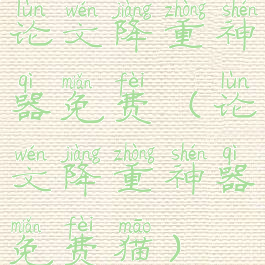 lùn wén jiàng zhòng shén
论文降重神
qì miǎn fèi lùn
器免费（论
wén jiàng zhòng shén qì
文降重神器
miǎn fèi māo
免费猫）